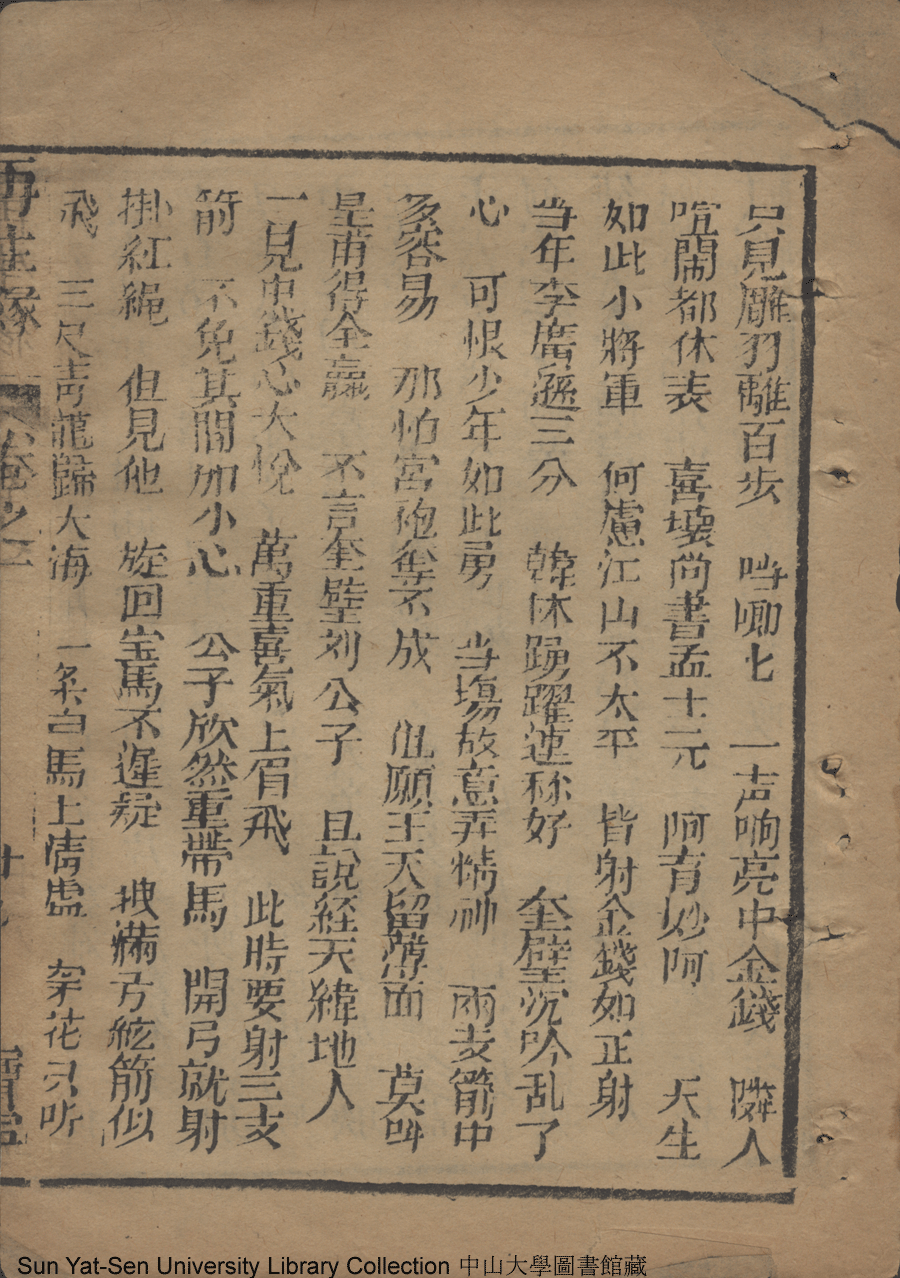 只見雕羽離百步 噹啷七 一声响亮中金錢 隣人
喧鬧都休表 喜壞尚書孟士元 阿育妙阿 天生
如此小將軍 何慮江山不太平 皆射金錢如正射
当年李廣遜三分 韓休踴躍連称好 奎璧沉吟乱了
心 可恨少年如此勇 当場故意弄情神 兩支箭中
多容易 那怕宮袍奪不成 但願王天留薄面 莫叫
皇甫得全贏 不言奎璧刘公子 且說経天緯地人
一見中錢心大悅 萬重喜氣上眉飛 此時要射三支
箭 不免其間加小心 公子欣然重帶馬 開弓就射
掛紅繩 但見他 旋回宝馬不遲疑 拽滿弓絃箭似
飛 三尺青龍歸大海 一条白馬上情虛 穿花只听
再生緣 卷之二 十九 寶寧
Sun Yat-Sen University Library Collection 中山大學圖書館藏